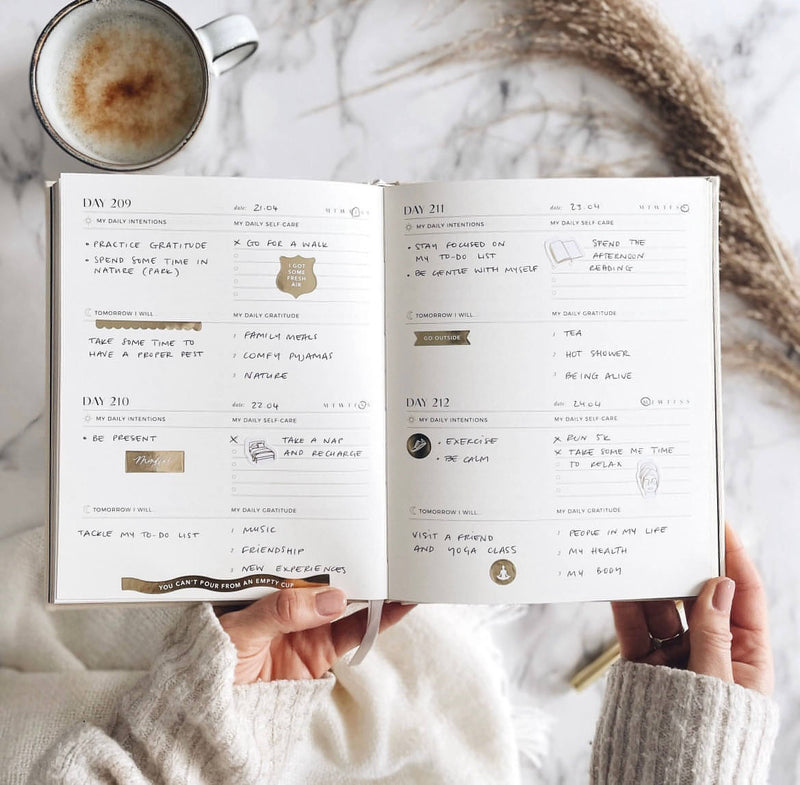 DAY 209
date: 21.04
M T W T F S S
MY DAILY INTENTIONS
MY DAILY SELF CARE
• PRACTICE GRATITUDE
• SPEND SOME TIME IN
NATURE (PARK)
X GO FOR A WALK
I GOT
SOME
FRESH
AIR
TOMORROW I WILL...
MY DAILY GRATITUDE
TAKE SOME TIME TO
HAVE A PROPER REST
1 FAMILY MEALS
2 COMFY PYJAMAS
3 NATURE
DAY 210
date: 22.04
M T W T F S S
MY DAILY INTENTIONS
MY DAILY SELF CARE
• BE PRESENT
Mindful
X TAKE A NAP
AND RECHARGE
TOMORROW I WILL...
MY DAILY GRATITUDE
TACKLE MY TO-DO LIST
1 MUSIC
2 FRIENDSHIP
3 NEW EXPERIENCES
YOU CAN'T POUR FROM AN EMPTY CUP
DAY 211
date: 23.04
M T W T F S S
MY DAILY INTENTIONS
MY DAILY SELF CARE
• STAY FOCUSED ON
MY TO-DO LIST
• BE GENTLE WITH MYSELF
SPEND THE
AFTERNOON
READING
TOMORROW I WILL...
MY DAILY GRATITUDE
GO OUTSIDE
1 TEA
2 HOT SHOWER
3 BEING ALIVE
DAY 212
date: 24.04
M T W T F S S
MY DAILY INTENTIONS
MY DAILY SELF CARE
• EXERCISE
• BE CALM
X RUN 5K
X TAKE SOME ME TIME
TO RELAX
TOMORROW I WILL...
MY DAILY GRATITUDE
VISIT A FRIEND
AND YOGA CLASS
1 PEOPLE IN MY LIFE
2 MY HEALTH
3 MY BODY